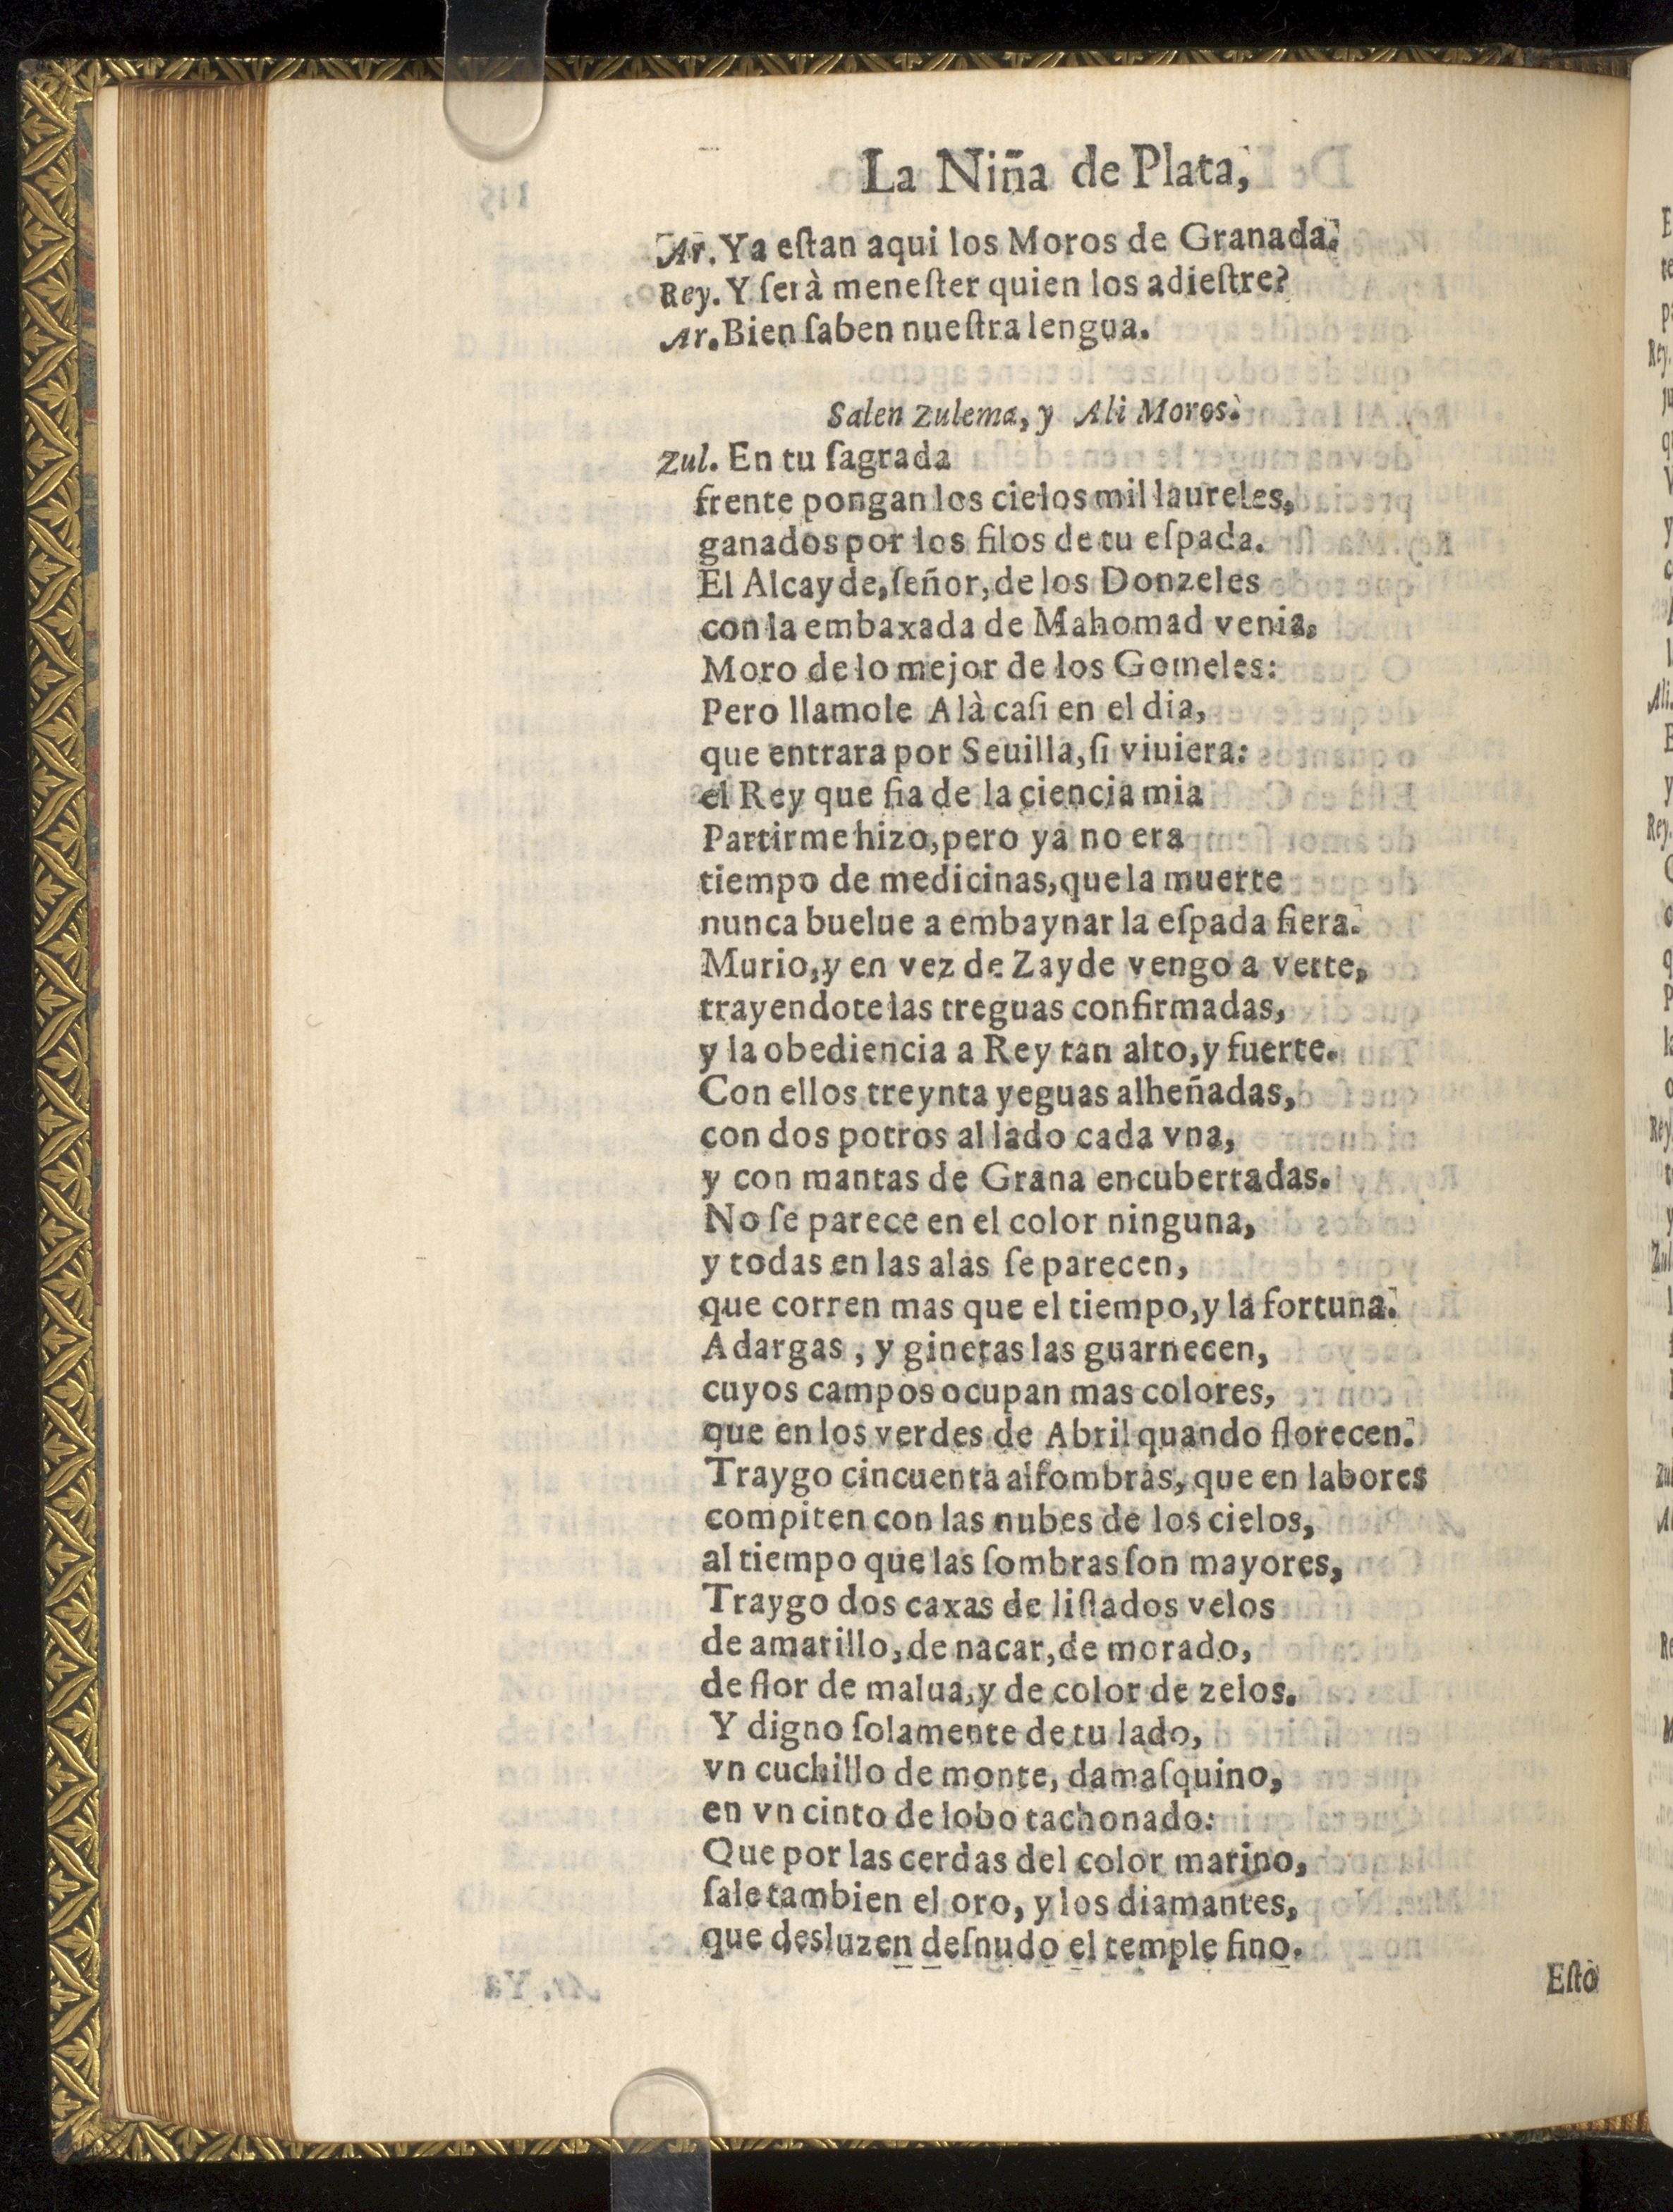 La Niña de Plata,
Ar. Ya eſtan aqui los Moros de Granada.
Rey. Y ſerà meneſter quien los adieſtre?
Ar. Bien ſaben nueſtra lengua.
Salen Zulema, y Ali Moros.
Zul. En tu ſagrada
frente pongan los cielos mil laureles,
ganados por los filos de tu eſpada.
El Alcayde, ſeñor, de los Donzeles
con la embaxada de Mahomad venia,
Moro de lo mejor de los Gomeles:
Pero llamole Alà caſi en el dia,
que entrara por Seuilla, ſi viuiera:
el Rey que fia de la ciencia mia
Partirme hizo, pero ya no era
tiempo de medicinas, que la muerte
nunca buelue a embaynar la eſpada fiera.
Murio, y en vez de Zayde vengo a verte,
trayendote las treguas confirmadas,
y la obediencia a Rey tan alto, y fuerte.
Con ellos treynta yeguas alheñadas,
con dos potros al lado cada vna,
y con mantas de Grana encubertadas.
No ſe parece en el color ninguna,
y todas en las alas ſe parecen,
que corren mas que el tiempo, y la fortuna.
Adargas, y ginetas las guarnecen,
cuyos campos ocupan mas colores,
que en los verdes de Abril quando florecen.
Traygo cincuenta alfombras, que en labores
compiten con las nubes de los cielos,
al tiempo que las ſombras ſon mayores,
Traygo dos caxas de liſtados velos
de amarillo, de nacar, de morado,
de flor de malua, y de color de zelos.
Y digno ſolamente de tu lado,
vn cuchillo de monte, damaſquino,
en vn cinto de lobo tachonado:
Que por las cerdas del color marino,
ſale tambien el oro, y los diamantes,
que desluzen deſnudo el temple fino.
Eſto